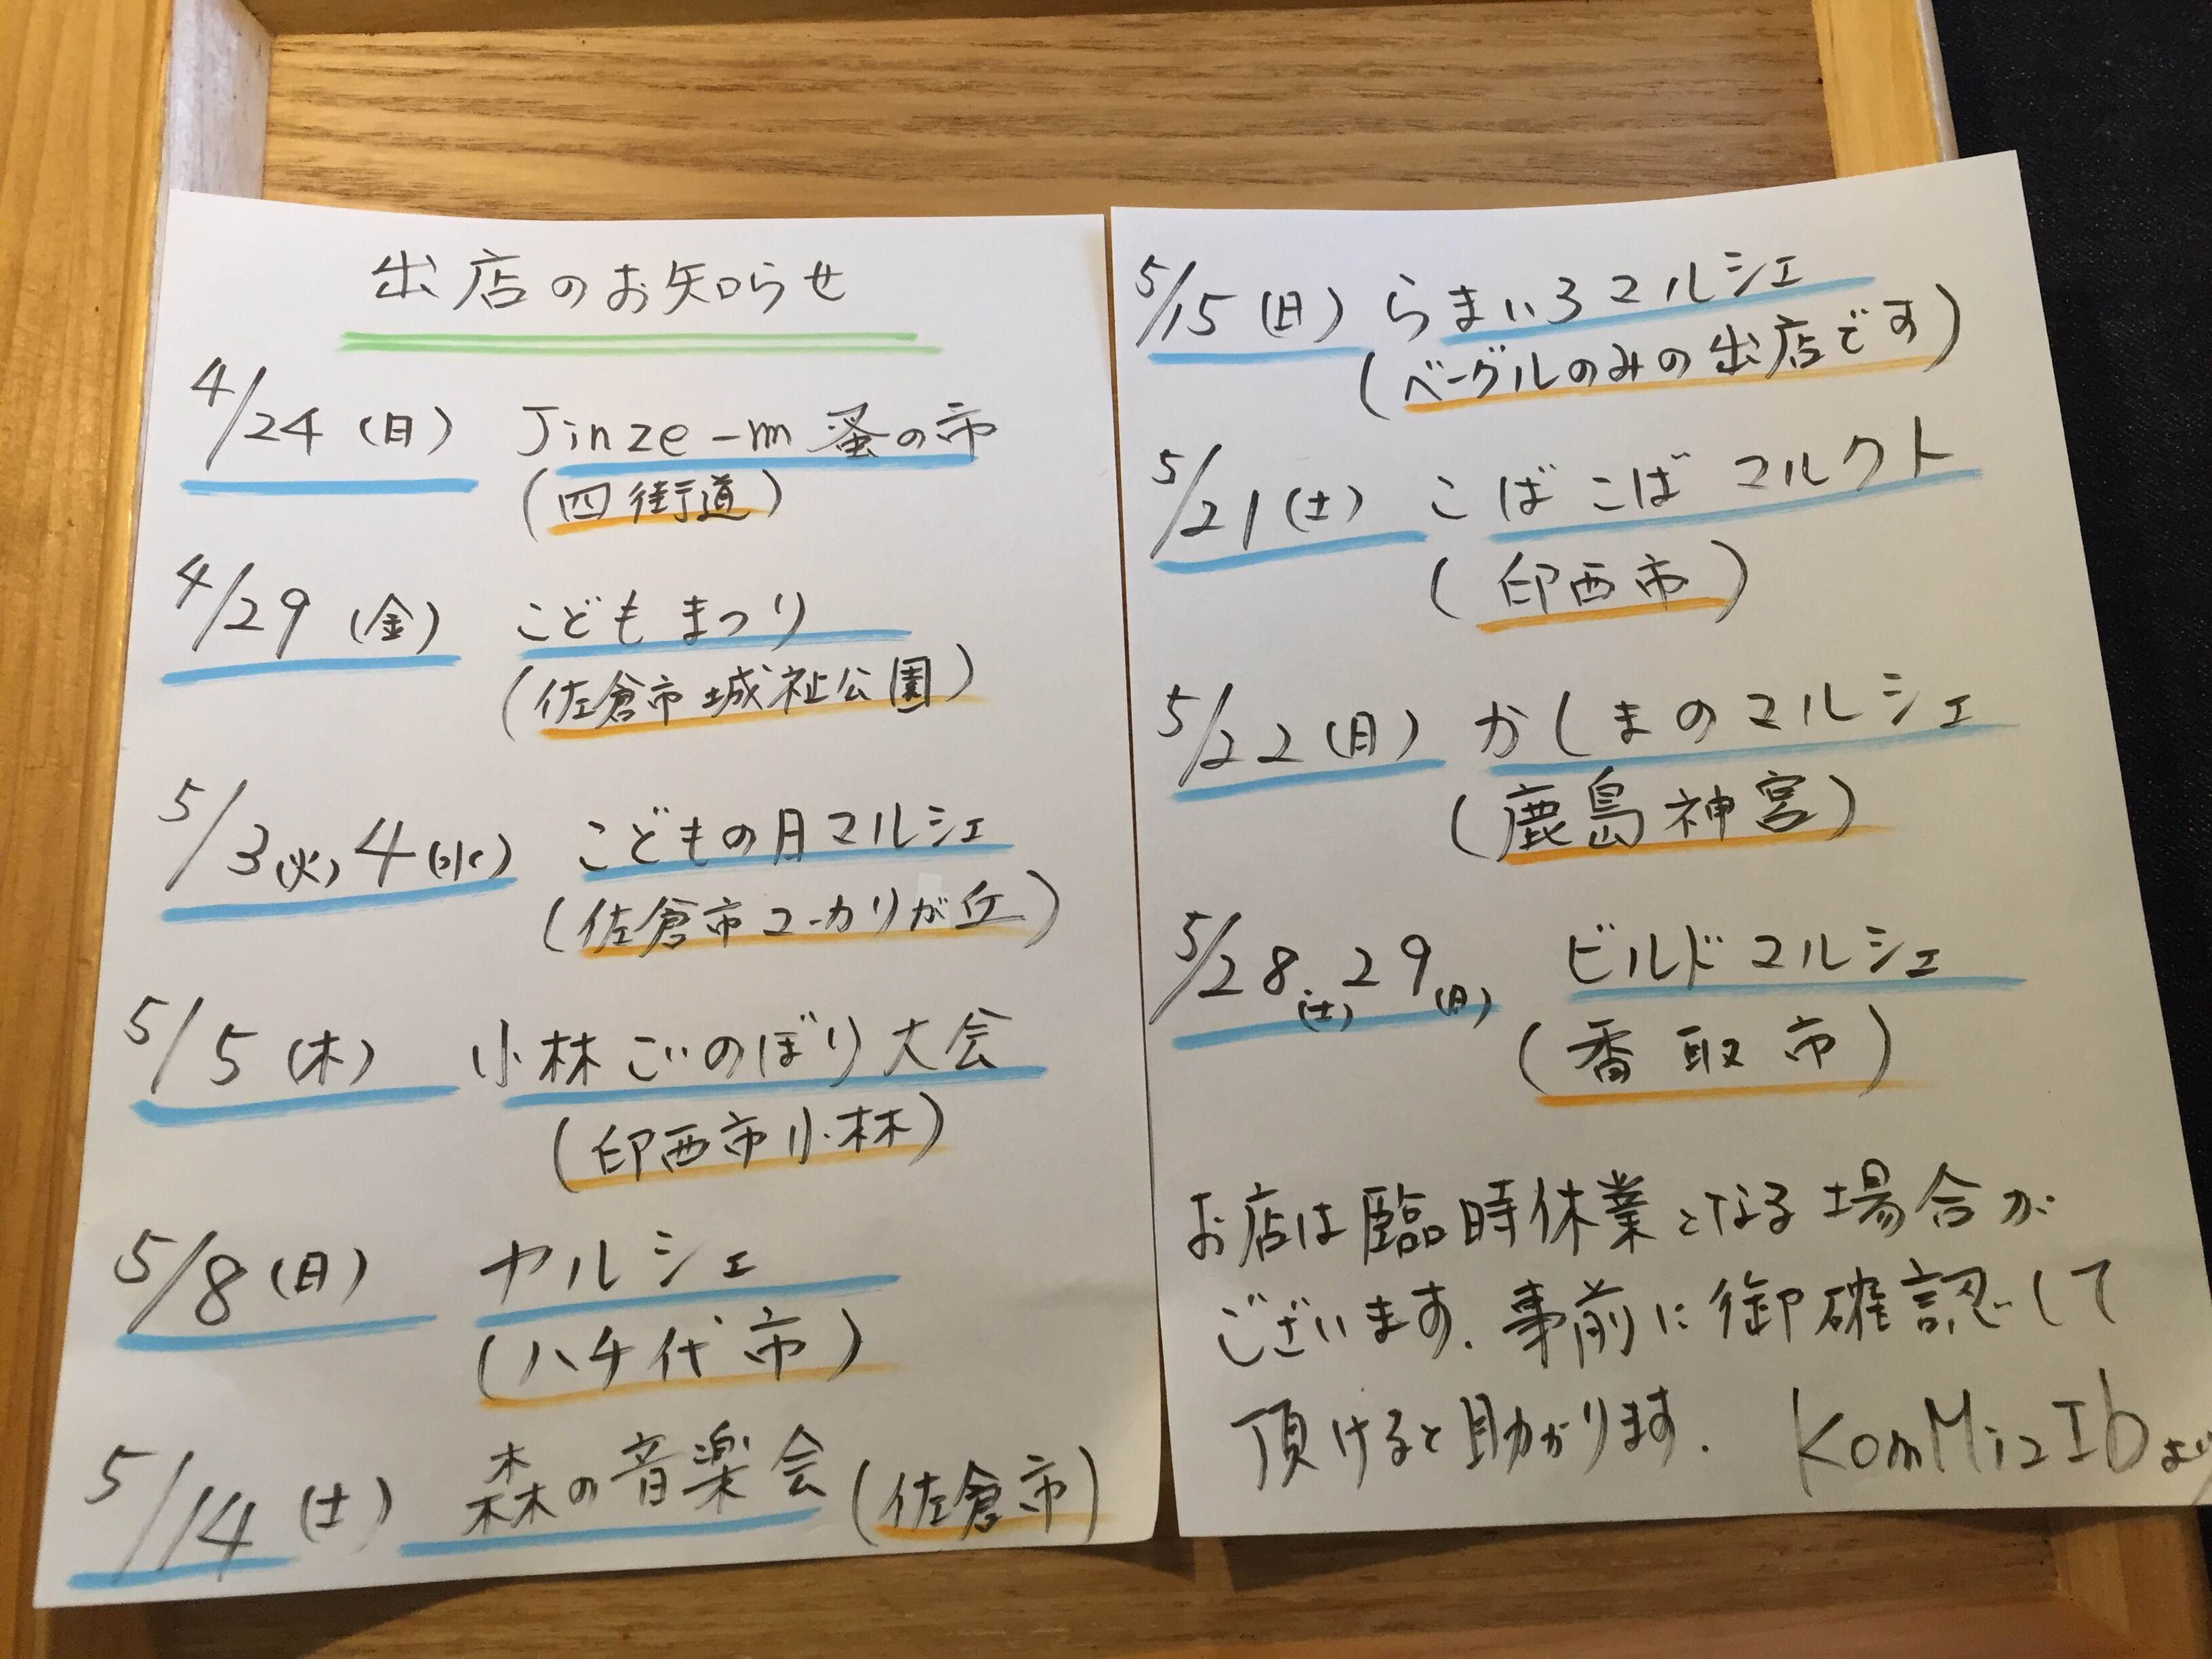 出店のお知らせ
4/24(日) Jinze-m 蚤の市
(四街道)
4/29(金) こどもまつり
(佐倉市城祉公園)
5/3(火),4(水) こどもの日マルシェ
(佐倉市ユーカリが丘)
5/5(木) 小林こいのぼり大会
(印西市小林)
5/8(日) ヤルシェ
(八千代市)
5/14(土) 森の音楽会(佐倉市)
5/15(日) らまいろマルシェ
(ベーグルのみの出店です)
5/21(土) こばこばマルクト
(印西市)
5/22(日) かしまのマルシェ
(鹿島神宮)
5/28(土),29(日) ビルドマルシェ
(香取市)
お店は臨時休業となる場合が
ございます.事前に御確認して
頂けると助かります. KomMizIbより